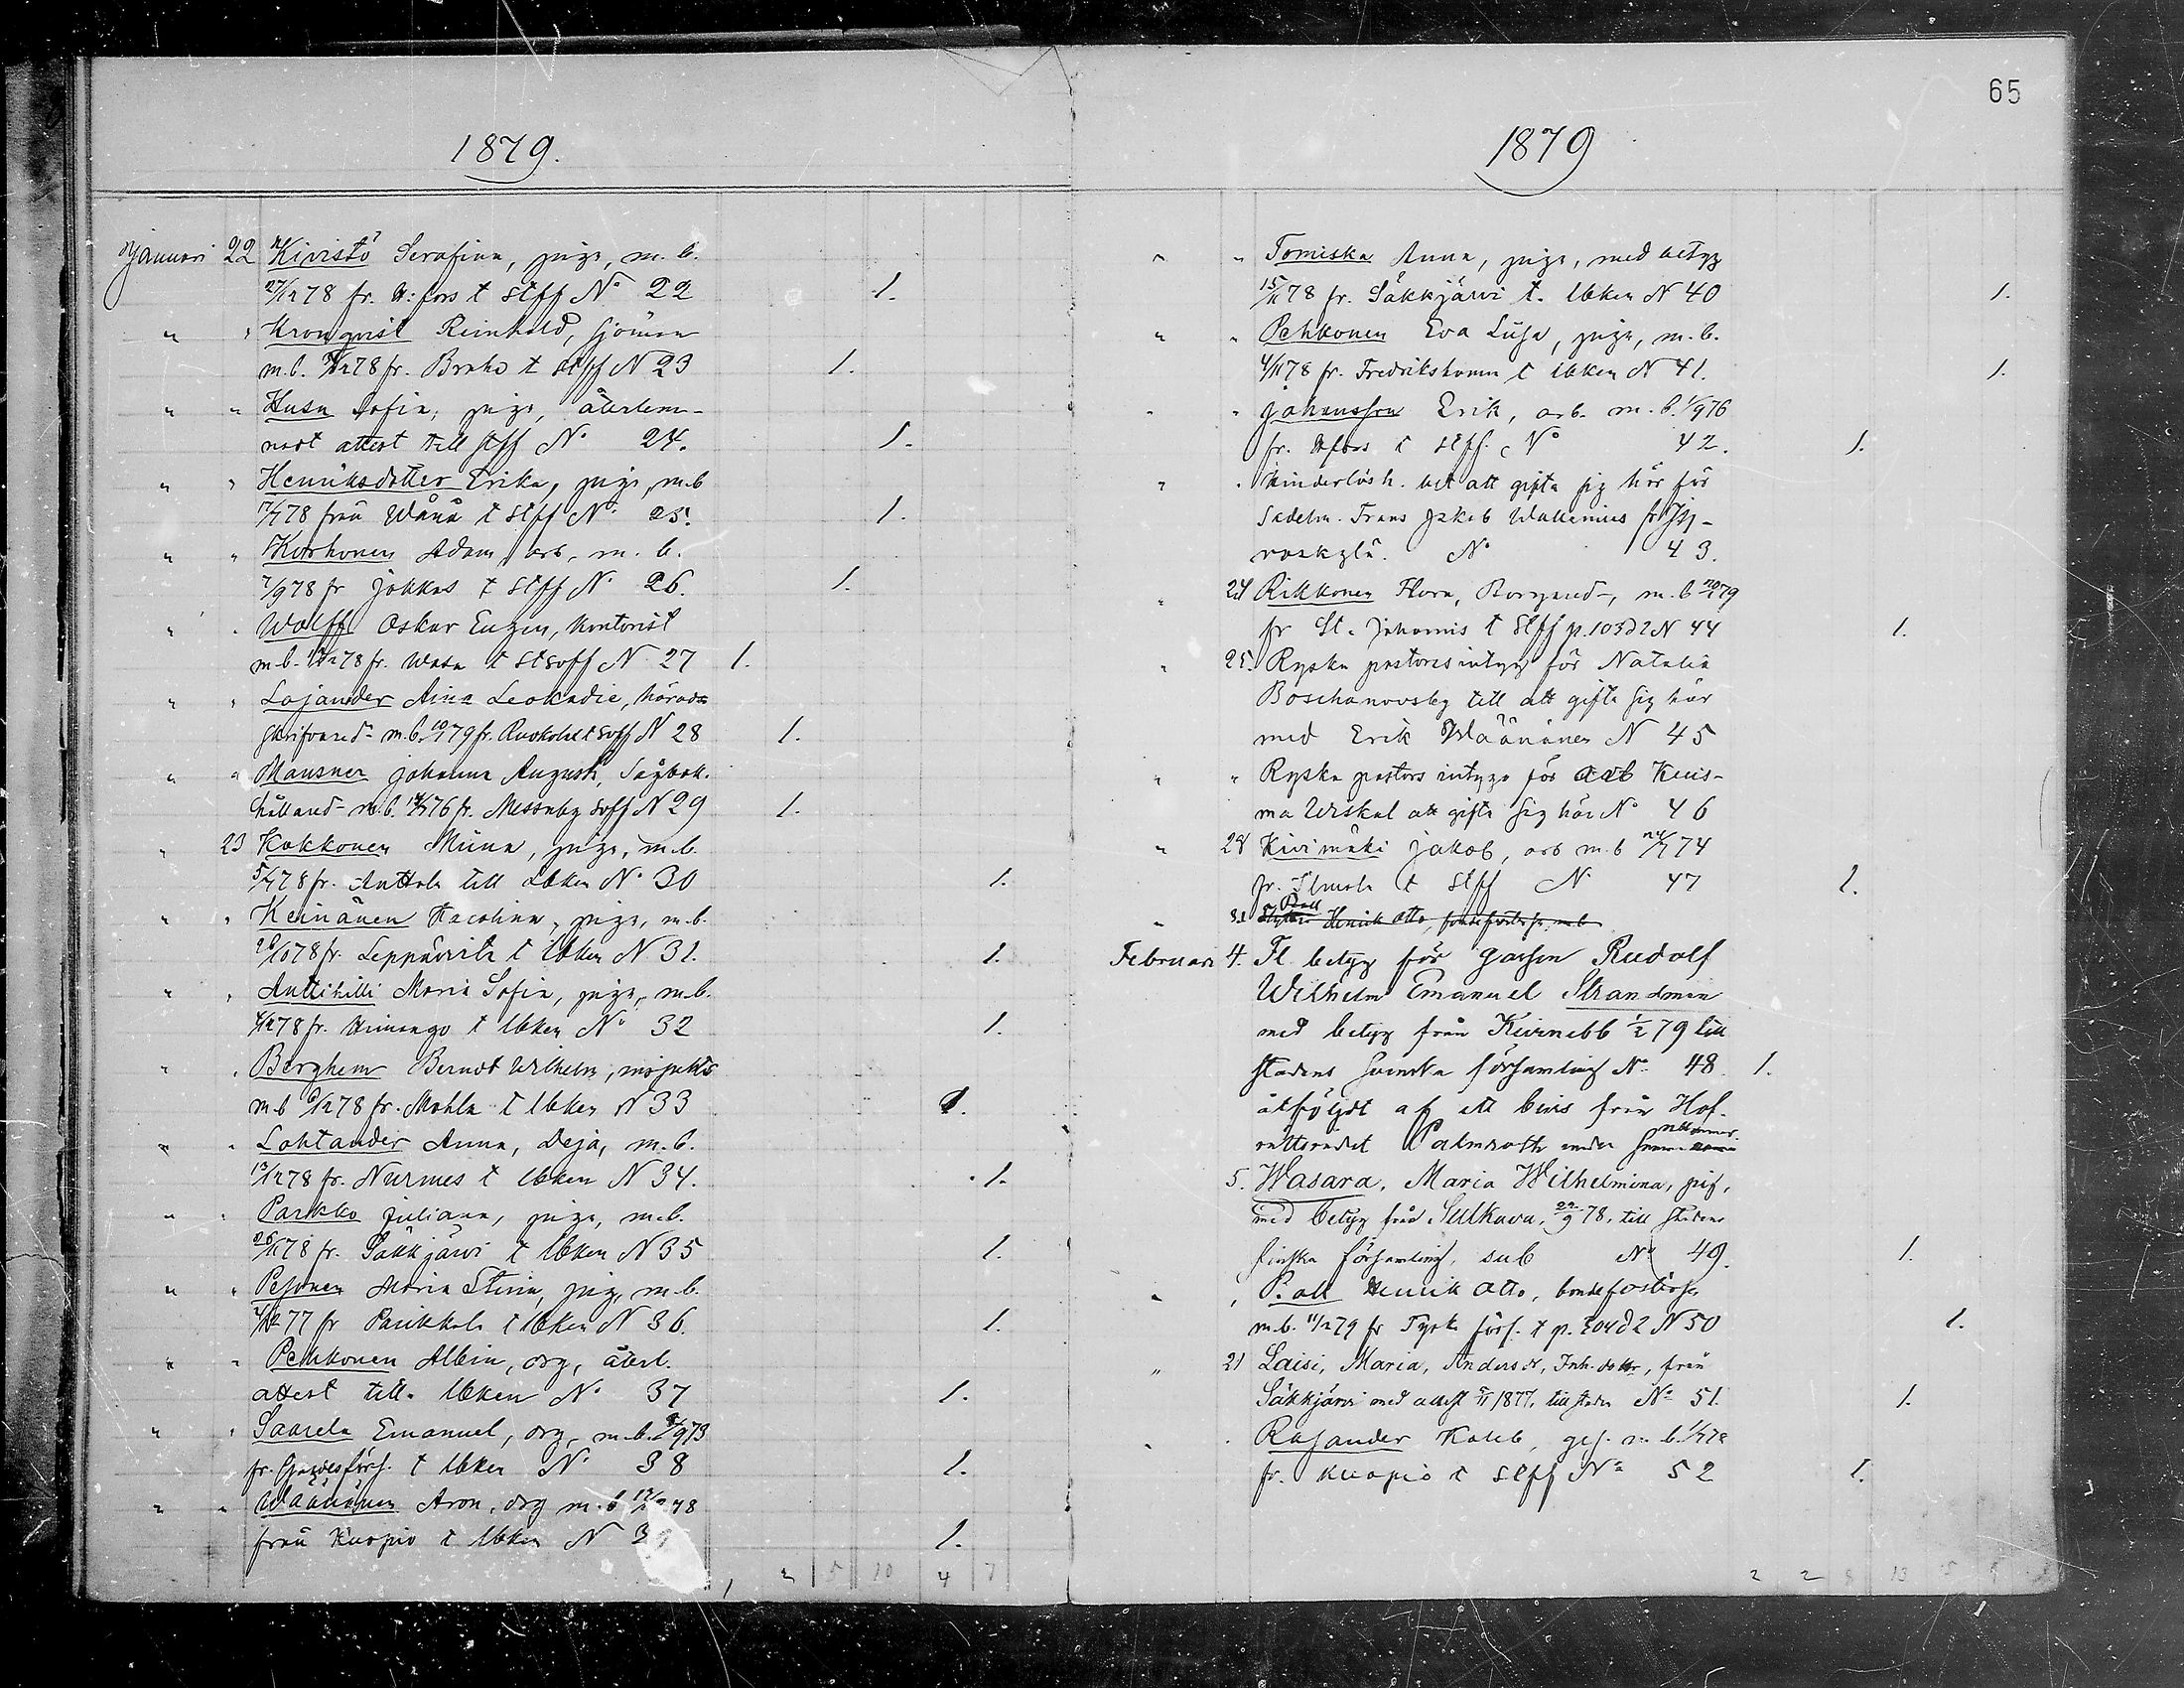 1879.
Januari 22 Kivistö Serafina, piga, m. b.
27/12 78 fr. H:fors t stff No 22 1.
" " Kronqvist Reinhold, sjöman
m.b. 78 fr. Brahe t stff N 23 1.
" " Husu Sofia, piga, återlem-
nadt attest till stff No 24. 1.
" " Henriksdotter Erika, piga, m.b
78 från Wånå t stff No 25. 1.
" " Korhonen Adam, arb, m. b.
7/9 78 fr Jokkas t stff No 26. 1.
" " Wolff Oskar Eugen, kontorist
m.b. 78 fr. Wasa t stsoff N 27 1.
" " Lojander Aina Leokadie, härads
skrifvared- m.b. 79 fr. Ruokolat soff N 28 1.
" " Mausner Johanna August, Sågbok-
hålland- m.b. 76 fr. Messuby soff N 29 1.
" 23 Kokkonen Miina, piga, m.b.
78 fr. Anttola till lbken No 30 1.
" " Keinänen Karolina, piga, m.b.
26/10 78 fr. Leppävirta t lbken N 31. 1.
" " Anttihilli Maria Sofia, piga, m.b.
78 fr. Himango t lbken No 32 1.
" " Berghem Berndt Wilhelm, inspektor
m.b 78 fr. Mohla t lbken N 33 1.
" " Lohtander Anna, Deja, m.b.
13/12 78 fr. Nurmes t lbken N 34. 1.
" " Parkko Juliana, piga, m.b.
26/11 78 fr. Säkkjärvi t lbken N 35 1.
" " Pesonen Maria Stina, piga, m.b.
77 fr Parikkala t lbken N 36. 1.
" " Pehkonen Albin, drg, återl.
attest till lbken No 37 1.
" " Saarela Emanuel, drg, m.b. 9 73
fr. förs. t lbken No 38 1.
" " Wäänänen Aron, drg m.b 78
från Kuopio t lbken N 39 1.
1 2 5 10 4 7
65
1879
" " Tomiska Anna, piga, med betyg
15/11 78 fr. Säkkjärvi t. lbken N 40 1.
" " Pehkonen Eva Lisa, piga, m.b.
4/11 78 fr. Fredrikshamn t lbken N 41. 1.
" " Johansson Erik, arb. m.b. 1/9 76
fr. Hfors t stff. No 42. 1.
" " Hinderlösh. bet att gifta sig här för
Sadelm. Frans Jakob Wallenius fr Jy-
väskylä. No 43.
" 24 Rikkonen Flora, Borgared-, m.b 79
fr St. Johannis t stff p. 103 d 2 N 44 1.
" 25. Ryska pastors intyg för Natalia
Boschanovsky till att gifta sig här
med Erik Wäänänen N 45
" " Ryska pastors intyg för arb Kuis-
ma Wiskal att gifta sig här No 46
" 28 Kivimäki Jakob, arb m.b 74
fr. Ilmola t stff No 47 1.
" 31 Päll Henrik Otto, m.b
Februari 4. Fl. betyg för gossen Rudolf
Wilhelm Emanuel Strandman
med betyg från Kivinebb 1/2 79 till
stadens svenska församling No 48. 1.
åtföljdt af ett bevis från Hof-
rättsrådet Palmroth under
5. Wasara, Maria Wilhelmina, pig,
med betyg från Sulkava, 22/9 78, till stadens
finska församling, sub No 49. 1.
" " Päll Henrik Otto, bondefosters.
m.b. 79 fr Tyska förs. t p. d 2 N 50 1.
" 21 Laisi, Maria, Andersdr, Inh. dotter, från
Säkkjärvi med attest 1877, till staden No 51. 1.
" " Rosander Kaleb, ges. m.b. 78
fr. Kuopio t stff No 52 1.
2 2 8 13 5